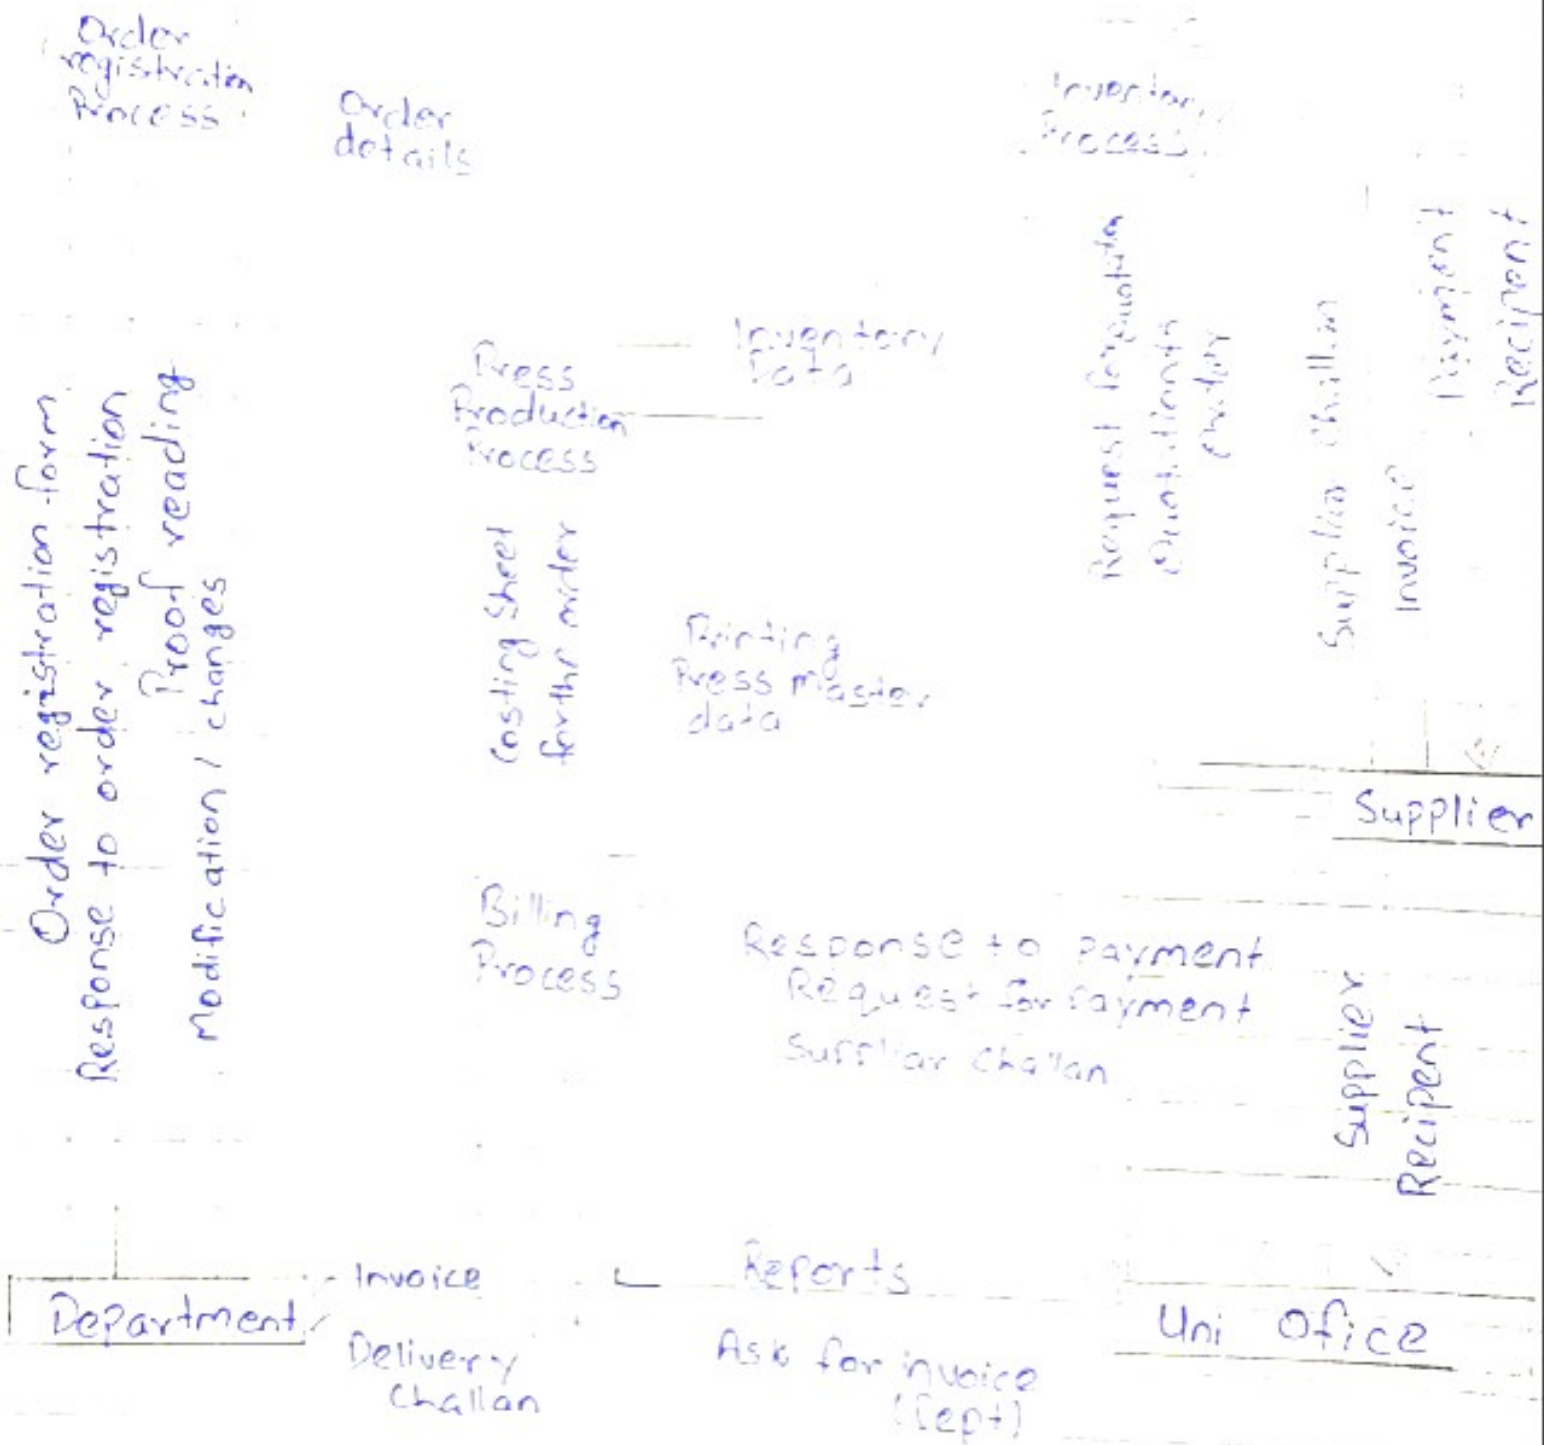 Order
registration
Process
Order
details
Inventory
Process
Order registration form
Response to order registration
Proof reading
Modification / changes
Press
Production
Process
Inventory
Data
Costing Sheet
for the order
Printing
Press master
data
Request for
Supplier Challan
Invoice
Payment
Recipent
Supplier
Billing
Process
Response to Payment
Request for Payment
Supplier Challan
Supplier
Recipent
Department
Invoice
Delivery
Challan
Reports
Ask for invoice
(Dept)
Uni Ofice